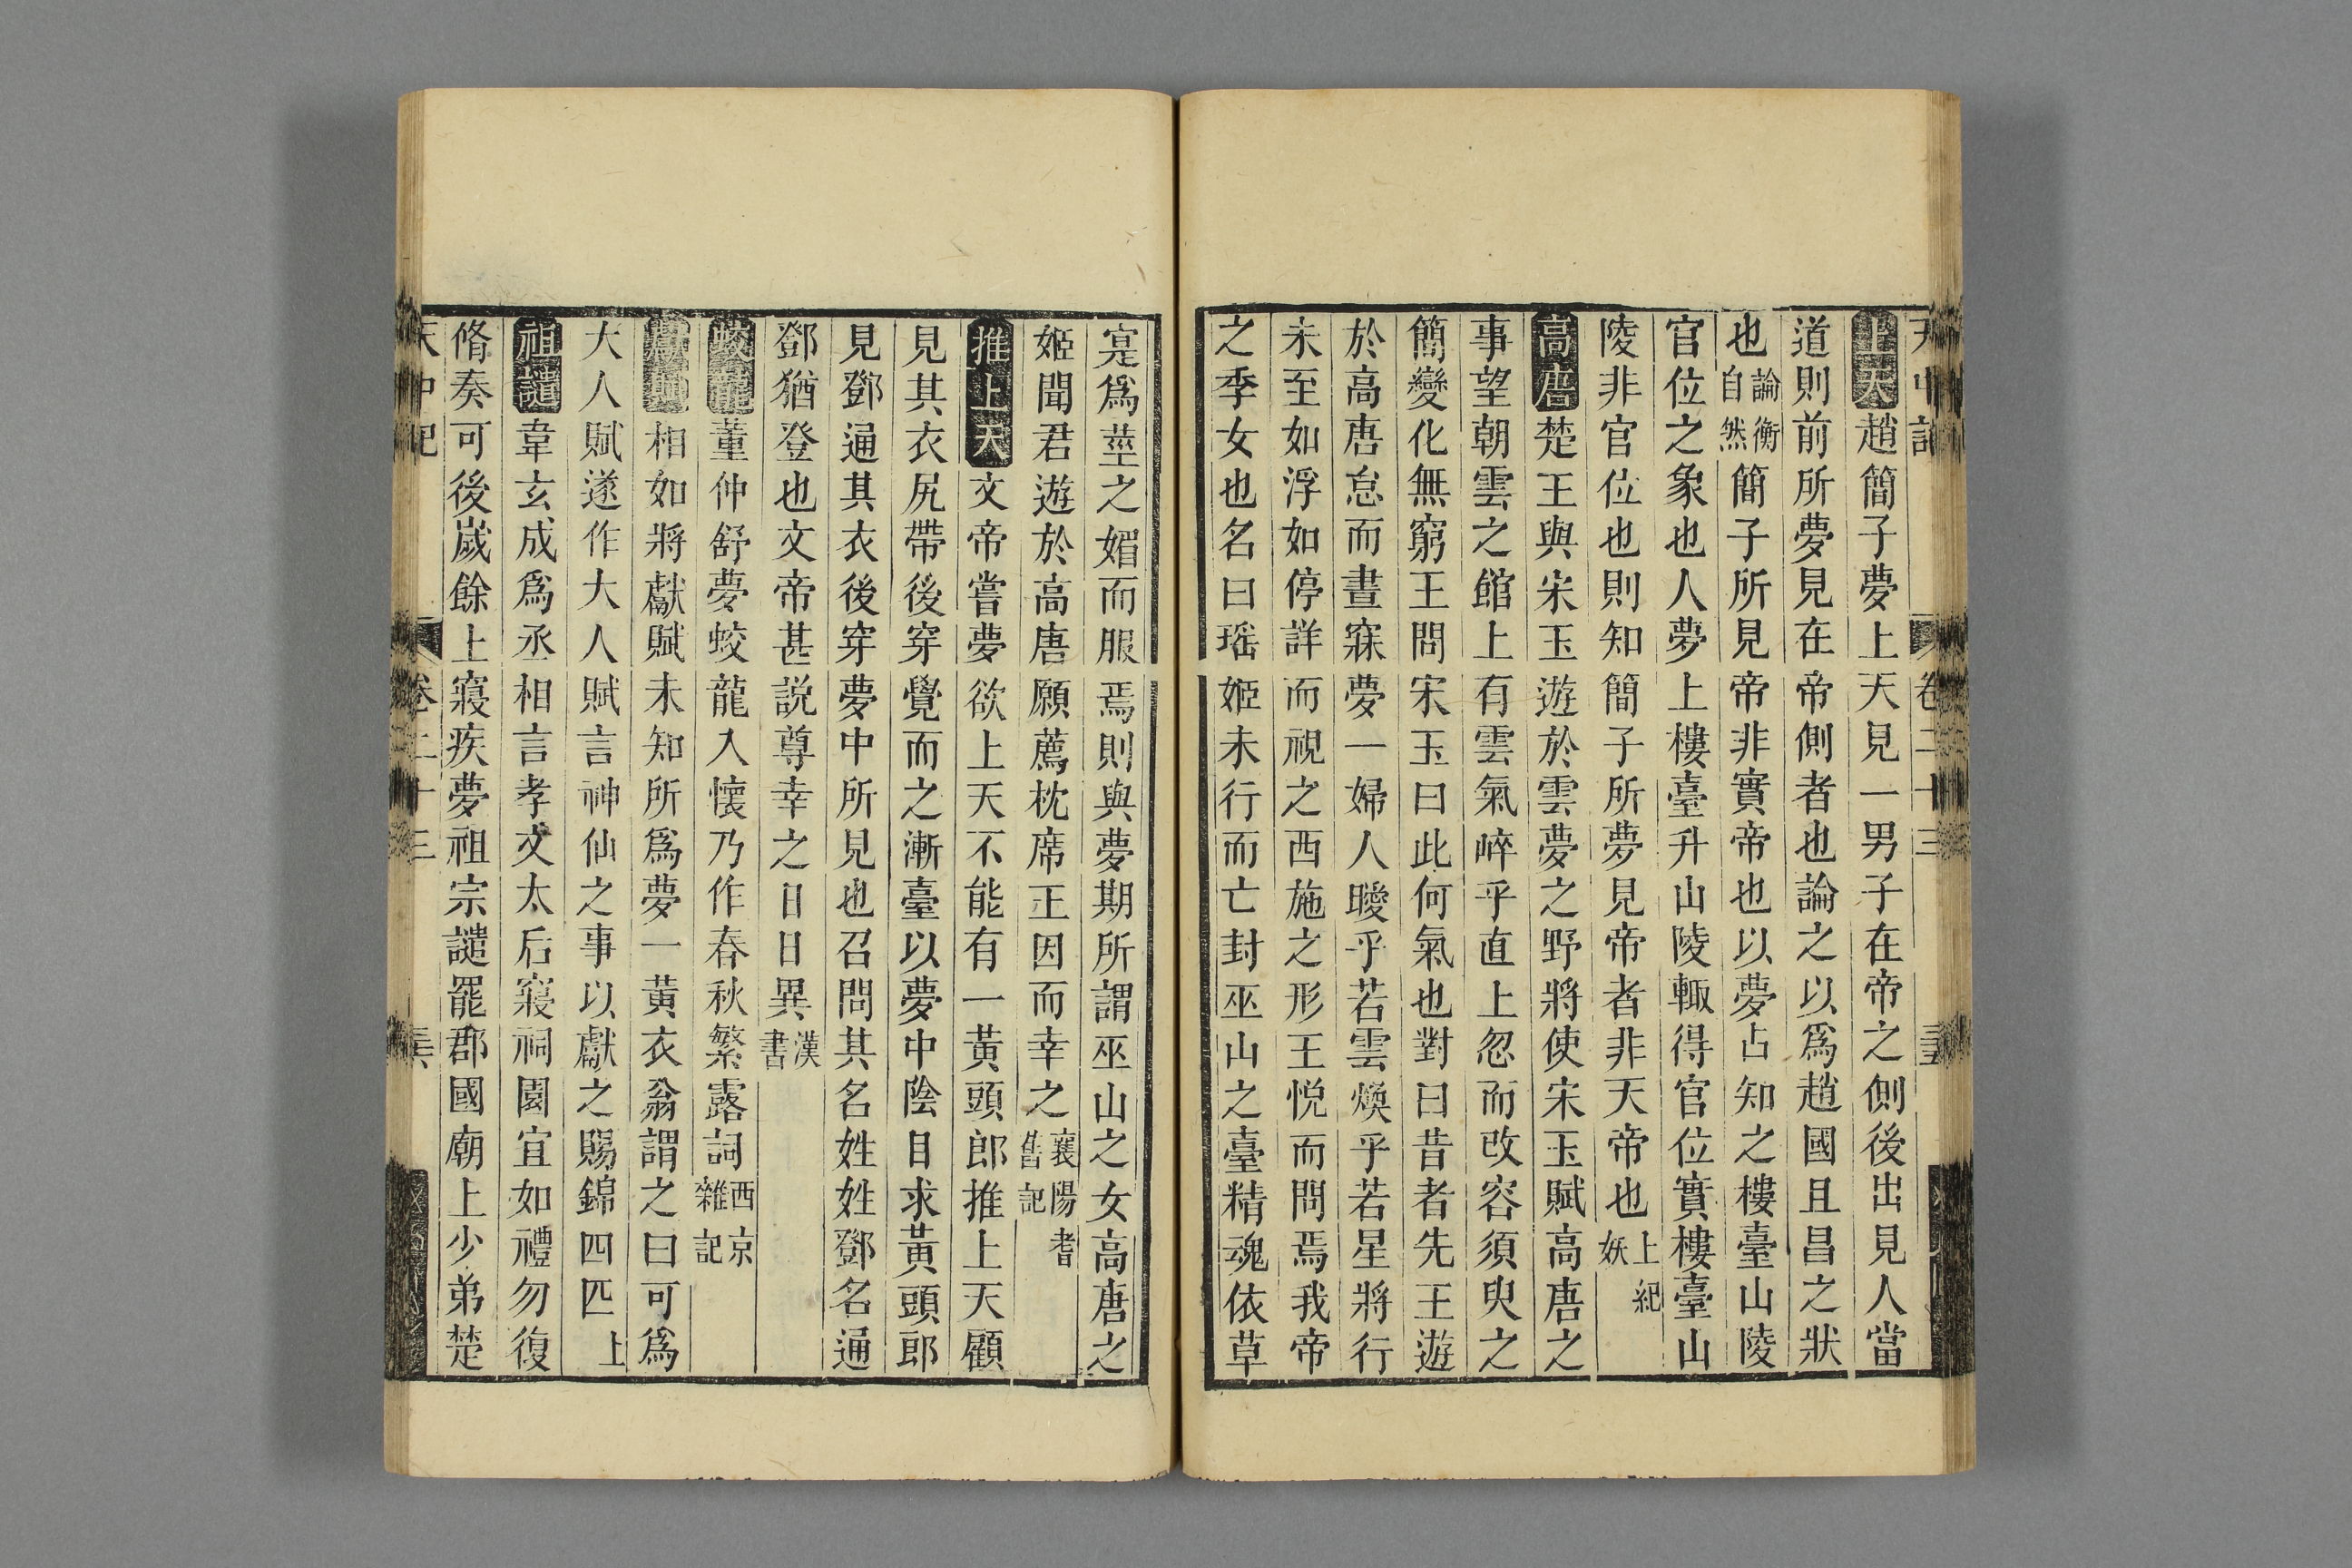 上天趙簡子夢上天見一男子在帝之側後出見人當
道則前所夢見在帝側者也論之以爲趙國且昌之狀
也論衡自然簡子所見帝非實帝也以夢占知之樓臺山陵
官位之象也人夢上樓臺升山陵輙得官位實樓臺山
陵非官位也則知簡子所夢見帝者非天帝也上紀妖
高唐楚王與宋玉遊於雲夢之野將使宋玉賦高唐之
事望朝雲之館上有雲氣崪乎直上忽而改容須臾之
簡變化無窮王問宋玉曰此何氣也對曰昔者先王遊
於高唐怠而晝寐夢一婦人曖乎若雲煥乎若星將行
未至如浮如停詳而視之西施之形王悅而問焉我帝
之季女也名曰瑶姬未行而亡封巫山之臺精魂依草
寔爲莖之媚而服焉則與夢期所謂巫山之女高唐之
姬聞君遊於高唐願薦枕席王因而幸之襄陽耆舊記
推上天文帝嘗夢欲上天不能有一黃頭郎推上天顧
見其衣尻帶後穿覺而之漸臺以夢中陰目求黃頭郎
見鄧通其衣後穿夢中所見也召問其名姓姓鄧名通
鄧猶登也文帝甚說尊幸之日日異漢書
蛟龍董仲舒夢蛟龍入懷乃作春秋繁露詞西京雜記
獻賦相如將獻賦未知所爲夢一黃衣翁謂之曰可爲
大人賦遂作大人賦言神仙之事以獻之賜錦四匹上
祖譴韋玄成爲丞相言孝文太后寢祠園宜如禮勿復
脩奏可後歲餘上寢疾夢祖宗譴罷郡國廟上少弟楚